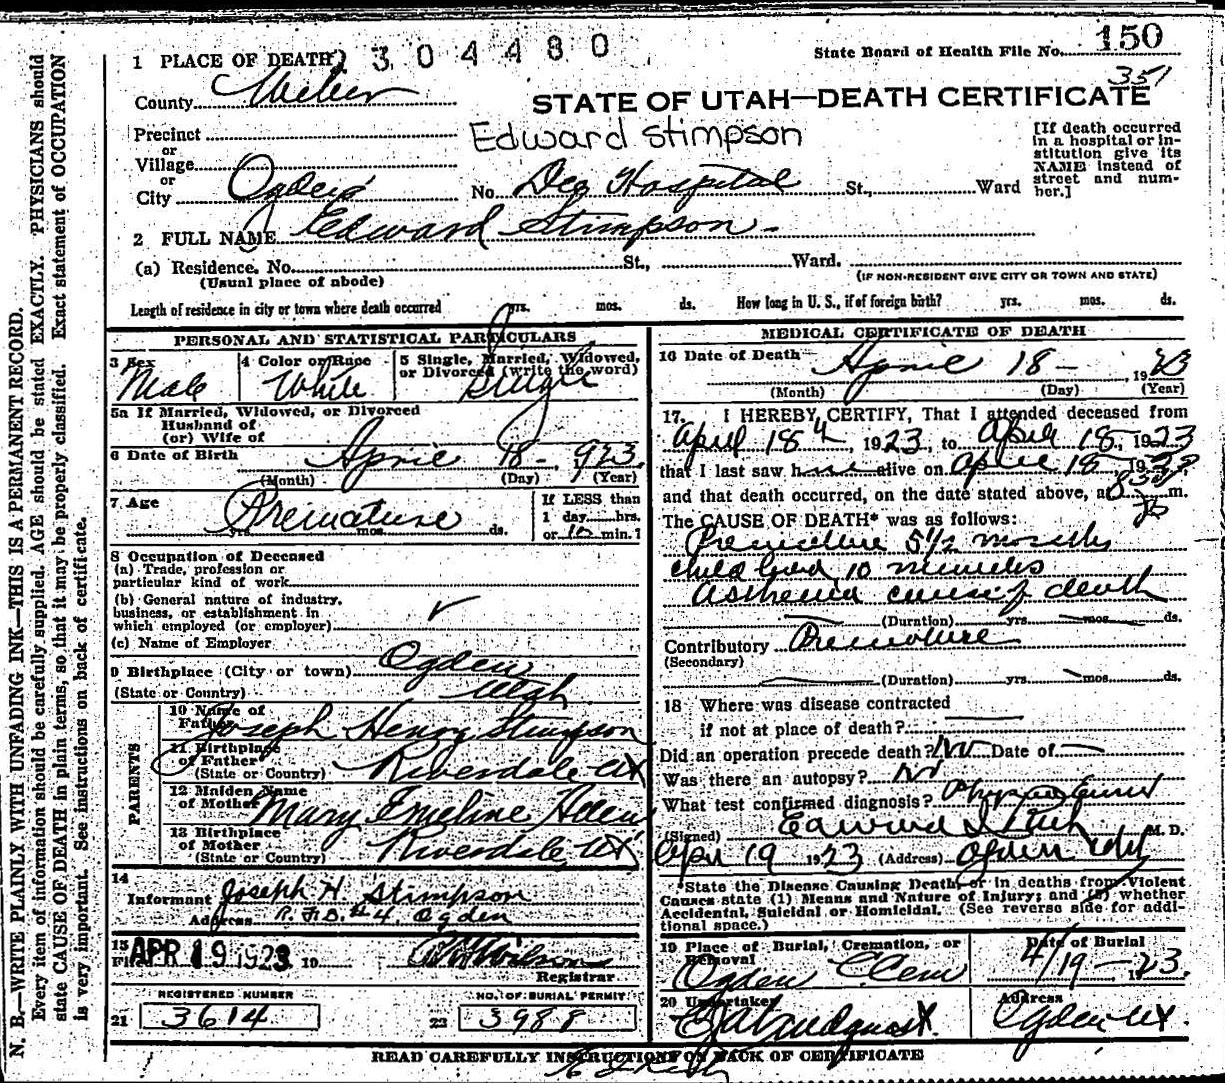 N. B.—WRITE PLAINLY WITH UNFADING INK—THIS IS A PERMANENT RECORD.
Every item of information should be carefully supplied. AGE should be stated EXACTLY. PHYSICIANS should
state CAUSE OF DEATH in plain terms, so that it may be properly classified. Exact statement of OCCUPATION
is very important. See instructions on back of certificate.
304480
State Board of Health File No. 150
351
1 PLACE OF DEATH
County Weber
STATE OF UTAH—DEATH CERTIFICATE
Edward Stimpson
Precinct
or
Village
or
City Ogden No. Dee Hospital St., Ward
[If death occurred
in a hospital or in-
stitution give its
NAME instead of
street and num-
ber.]
2 FULL NAME Edward Stimpson
(a) Residence. No. St., Ward.
(Usual place of abode)
(IF NON-RESIDENT GIVE CITY OR TOWN AND STATE)
Length of residence in city or town where death occurred yrs. mos. ds. How long in U. S., if of foreign birth? yrs. mos. ds.
PERSONAL AND STATISTICAL PARTICULARS
3 Sex Male
4 Color or Race White
5 Single, Married, Widowed,
or Divorced (write the word)
Single
5a If Married, Widowed, or Divorced
Husband of
(or) Wife of
6 Date of Birth April 18- 923
(Month) (Day) (Year)
7 Age Premature
yrs. mos. ds.
If LESS than
1 day hrs.
or 10 min.?
8 Occupation of Deceased
(a) Trade, profession or
particular kind of work
(b) General nature of industry,
business, or establishment in
which employed (or employer)
(c) Name of Employer
9 Birthplace (City or town) Ogden
(State or Country) Utah
PARENTS
10 Name of
Father Joseph Henry Stimpson
11 Birthplace
of Father
(State or Country) Riverdale Ut
12 Maiden Name
of Mother Mary Emeline
13 Birthplace
of Mother
(State or Country) Riverdale, Ut
14
Informant Joseph H. Stimpson
Address R. F. D. #4, Ogden
15
APR 19 1923 19
Wilson
Registrar
REGISTERED NUMBER
21 3614
NO. OF BURIAL PERMIT
22 3988
MEDICAL CERTIFICATE OF DEATH
16 Date of Death April 18- , 1923
(Month) (Day) (Year)
17. I HEREBY CERTIFY, That I attended deceased from
April 18th, 1923, to April 18, 1923
that I last saw h alive on April 18 19
and that death occurred, on the date stated above, at m.
The CAUSE OF DEATH* was as follows:
Premature 5 1/2 months
child lived 10 minutes
Asthenia cause of death
(Duration) yrs. mos. ds.
Contributory Premature
(Secondary)
(Duration) yrs. mos. ds.
18 Where was disease contracted
if not at place of death?
Did an operation precede death? No Date of
Was there an autopsy? No
What test confirmed diagnosis?
(Signed) Edward I. M. D.
Apr 19 1923 (Address) Ogden Utah
*State the Disease Causing Death, or in deaths from Violent
Causes state (1) Means and Nature of Injury; and (2) whether
Accidental, Suicidal or Homicidal. (See reverse side for addi-
tional space.)
19 Place of Burial, Cremation, or
Removal
Ogden C. Cem
Date of Burial
4/19-23.
20 Undertaker
Address
Ogden Ut.
READ CAREFULLY INSTRUCTIONS ON BACK OF CERTIFICATE